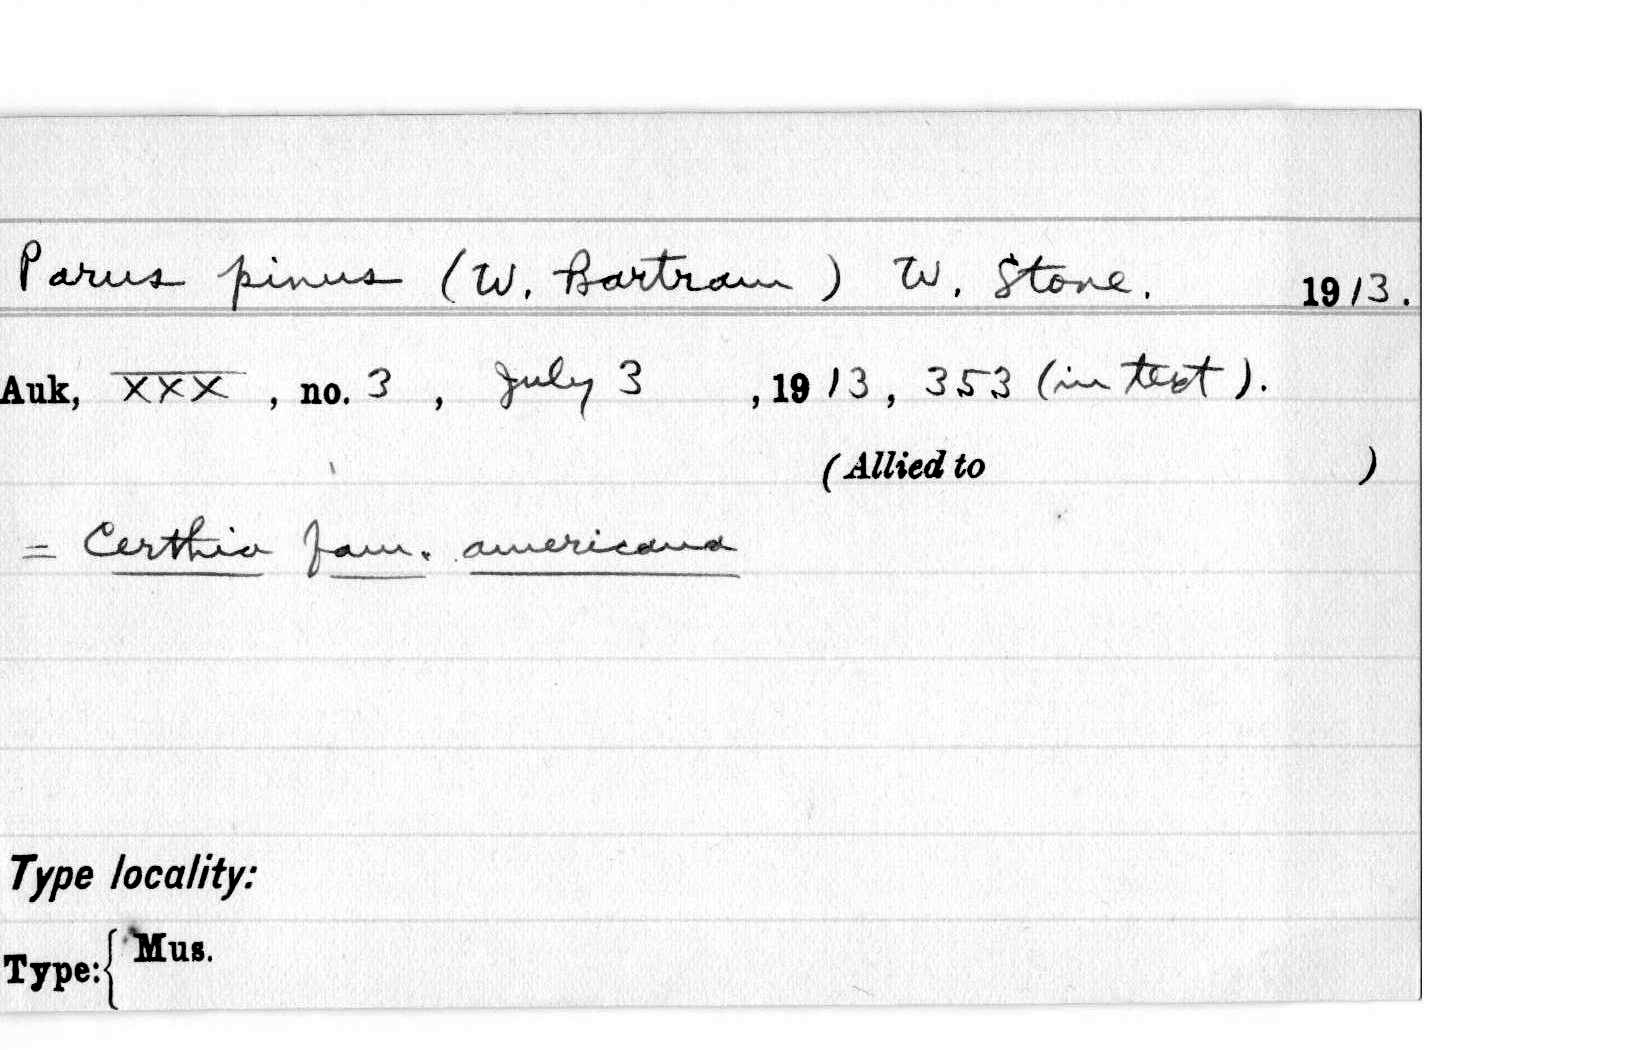 Parus pinus (W. Bartram) W. Stone. 1913.
Auk, XXX, no. 3, July 3, 1913, 353 (in text).
(Allied to )
= Certhia fam. americana
Type locality:
Type: { Mus.